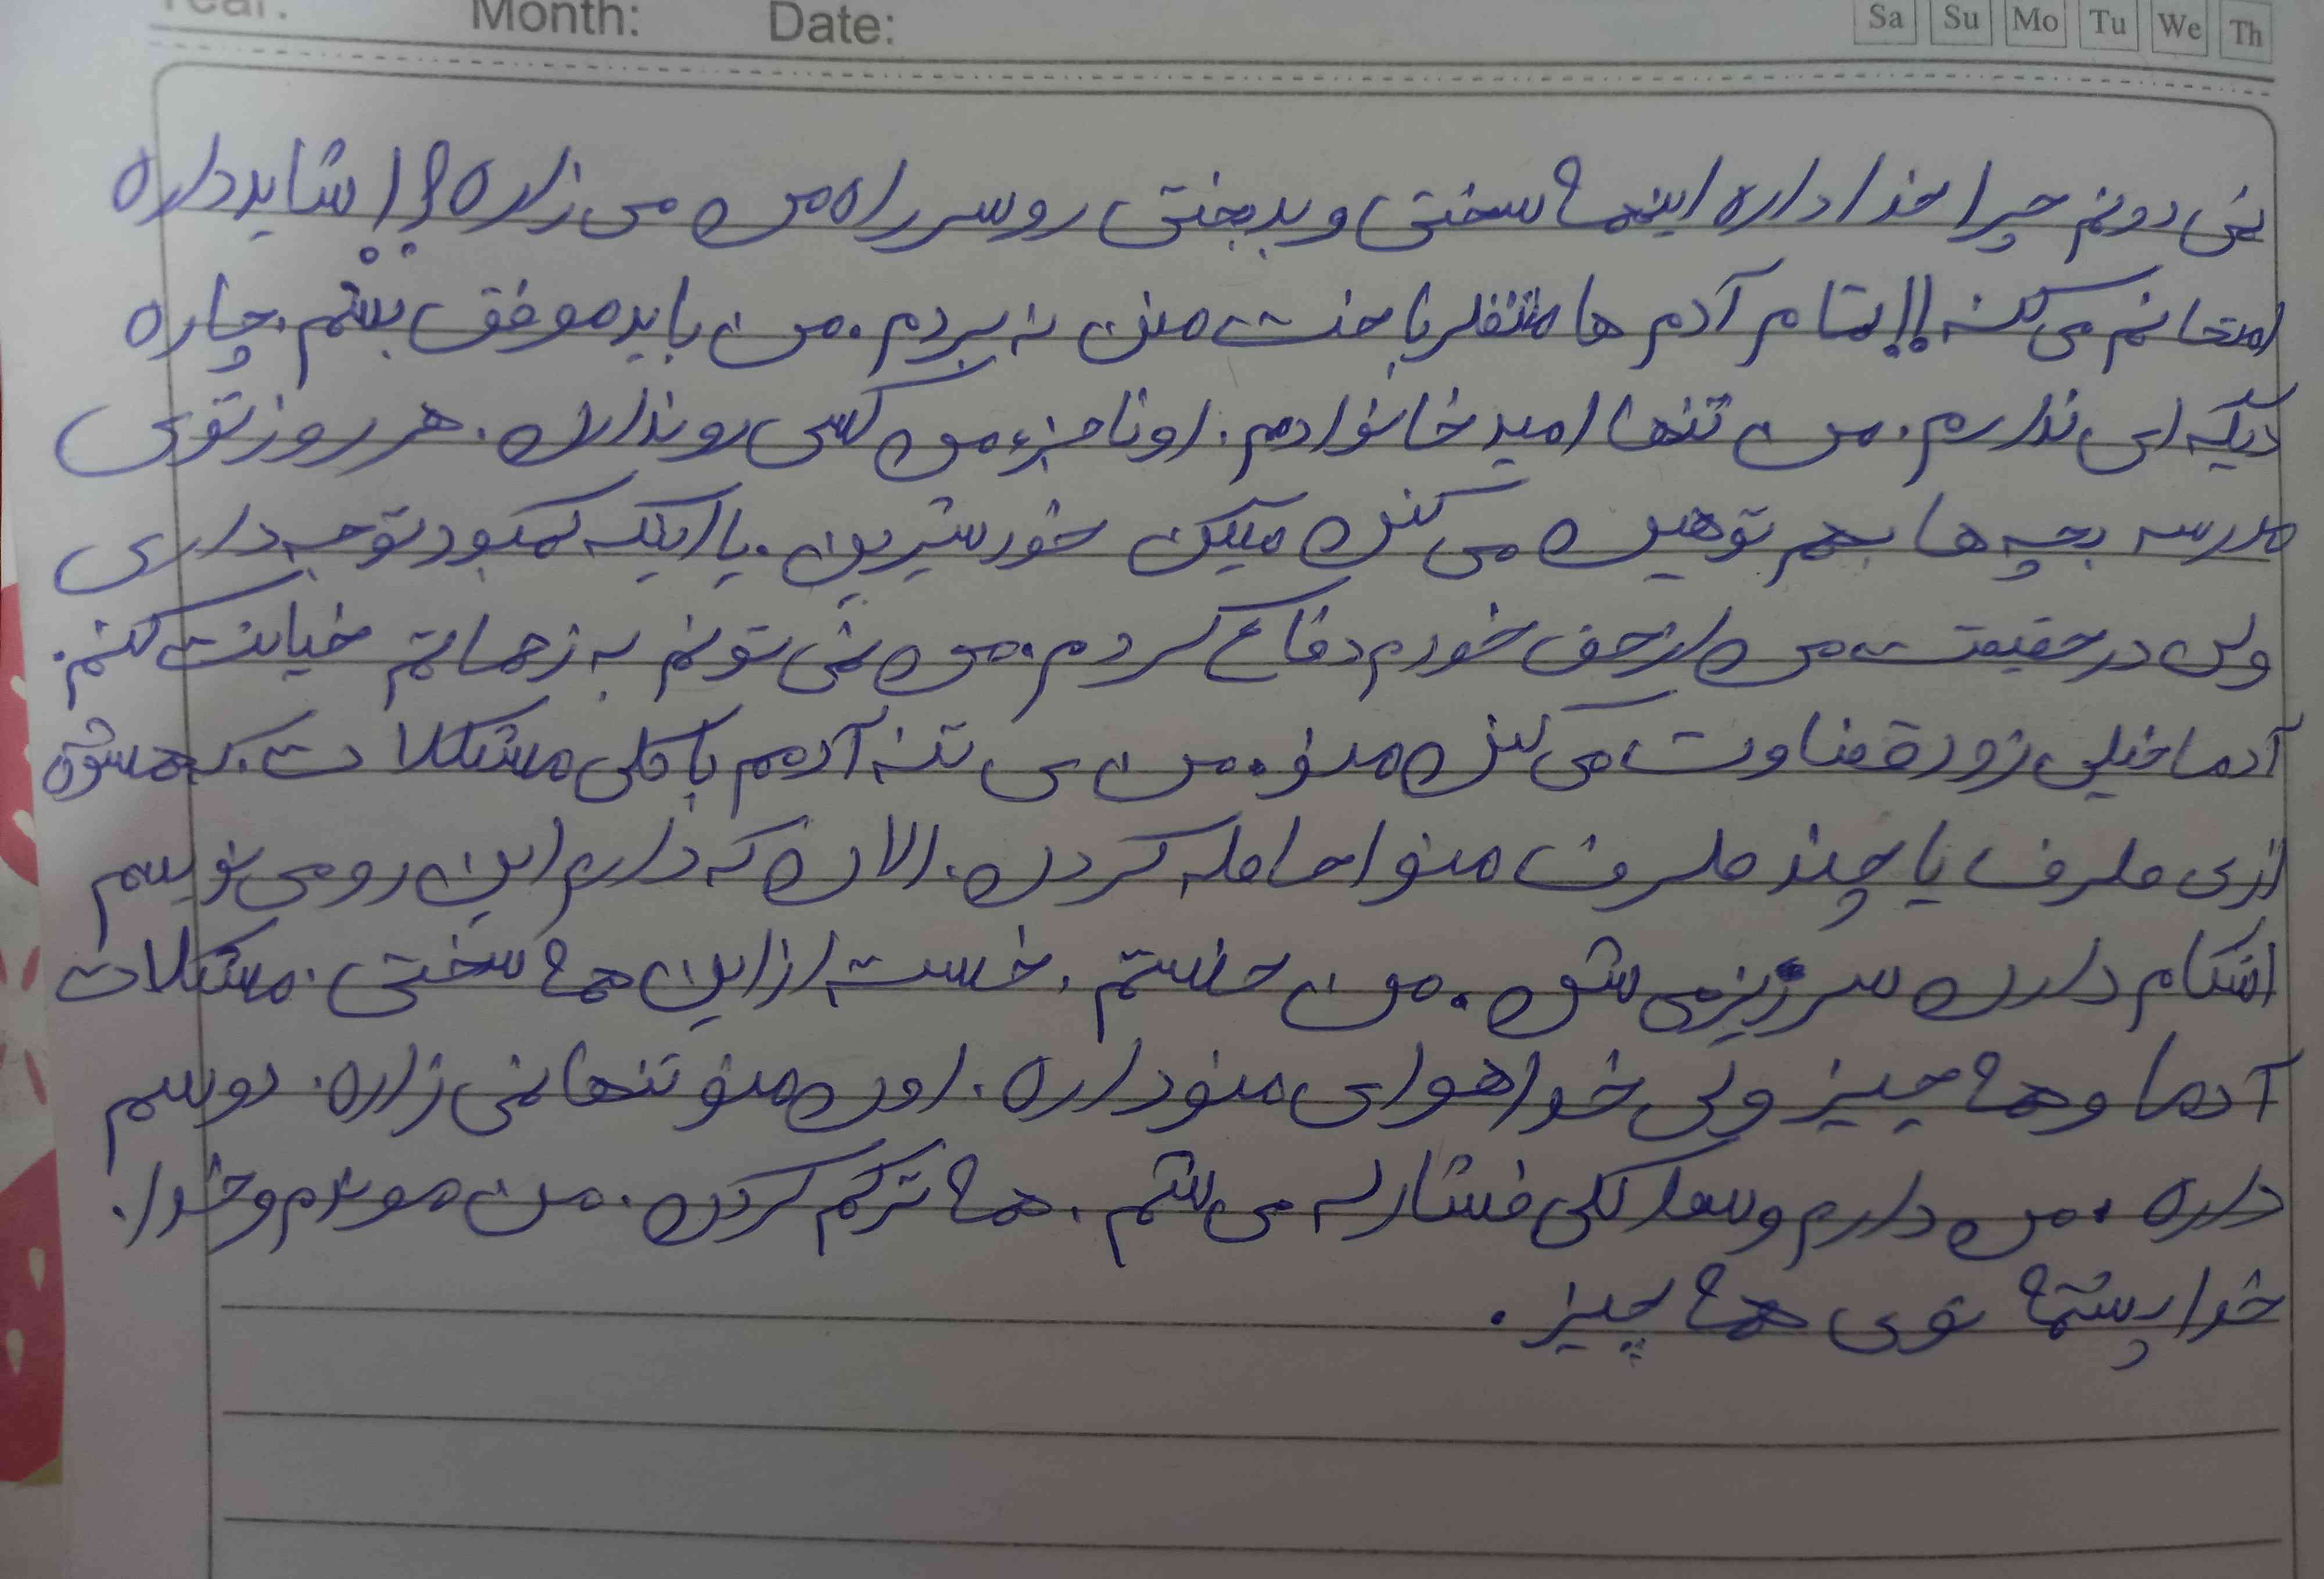 Year: Month: Date: Sa Su Mo Tu We Th
نمی دونم چرا خدا داره اینهمه سختی و بدبختی رو سر راه من می زاره؟! شاید داره
امتحانم می کنه!! تمام آدم ها منتظر باخت منن نه بردم. من باید موفق بشم. چاره
دیگه ای ندارم. من تنها امید خانوادمم. اونا جزء من کسی رو ندارن. هر روز توی
مدرسه بچه ها بهم توهین می کنن میگن خودشیرین. یا اینکه کمبود توجه داری
ولی در حقیقت من از حق خودم دفاع کردم. من نمی تونم به زحماتم خیانت کنم.
آدما خیلی زود قضاوت می کنن منو. من ی تنه آدمم با کلی مشکلات. که همشون
از ی طرف یا چند طرف منو احاطه کردن. الان که دارم این رو می نویسم
اشکام دارن سرریز می شن. من خستم. خسته از این همه سختی. مشکلات
آدما و همه چیز ولی خدا هوای منو داره. اون منو تنها نمی زاره. دوسم
داره. من دارم وسط کلی فشار له می شم. همه ترکم کردن. من موندم و خدا.
خدا پشتمه توی همه چیز.